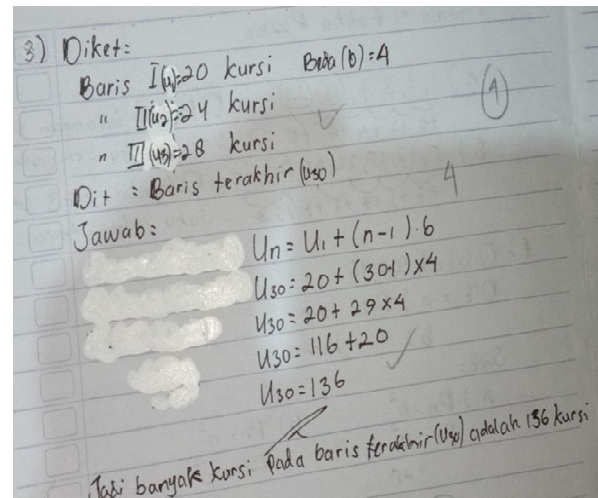 3) Diket:
Baris I(u1)=20 kursi Beda (b)=4
" II(u2)=24 kursi
" III(u3)=28 kursi
4
Dit : Baris terakhir (u30)
4
Jawab:
Un = U1 + (n-1).b
U30 = 20 + (30-1) x 4
U30 = 20 + 29 x 4
U30 = 116 + 20
U30 = 136
Jadi banyak kursi pada baris terakhir (U30) adalah 136 kursi